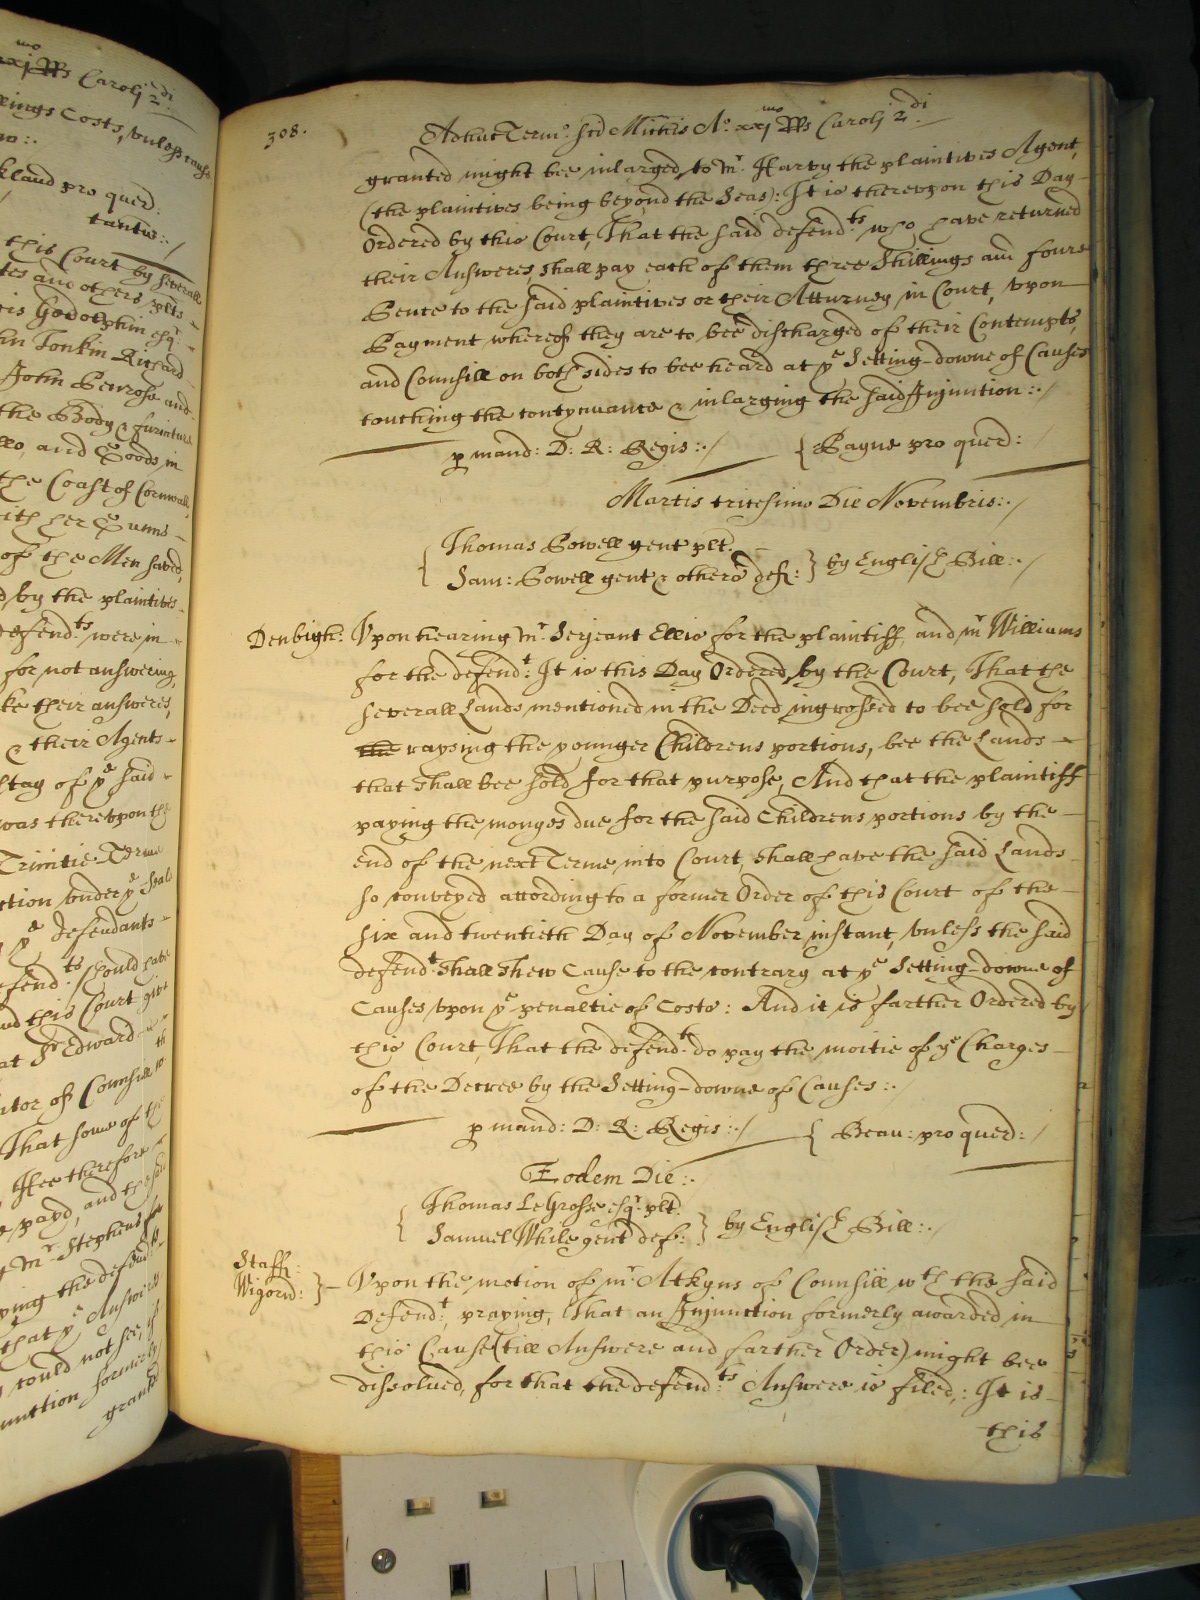 xxj mo RRs Caroli 2 di
Kings Costs, vnless cause
kland pro quer:
tantu:./
this Court by severall
tes and others plts
cis Godolphin esqr:
hn Tonkin Richard
John Penrose and
the Body & furniture
llo, and Goods in
the Coast of Cornwall
with her Gunns
of the Men saved,
d by the plaintives
defend:ts were in
for not answering,
ke their answeres,
& their Agents
stay of ye said
was therevpon the
Trinitie Terme
ction vnder ye Seal
ye defendants
efend:ts should have
nd this Court give
at Sr Edward
itor of Counsill
That some of the
Hee therefore
e payd, and the said
y Mr Stephens for
ying the defend:ts
that ye Answeres
could not see, if
unction formerly
grante
308.
Adhuc Term.o Scd Michis Ao. xxj mo RRs Caroli 2 di
granted might bee inlarged, to Mr. Harvy the plaintives Agent,
(the plaintives being beyond the Seas): It is therevpon this Day
Ordered by this Court, That the said defend:ts who have returned
their Answeres, shall pay each of them three Shillings and foure
Pence to the said plaintives or their Atturney, in Court, vpon
Payment whereof they are to bee discharged of their Contempts,
and Counsill on both sides to bee heard at ye Setting-downe of Causes
touching the contynuance & inlarging the said Injunction:./
p mand: D: R: Regis:./ { Payne pro quer:/
Martis tricesimo Die Novembris:./
{ Thomas Powell gent plt.
Sam: Powell gent & others def: } by English Bill:./
Denbigh: Vpon hearing Mr. Serjeant Ellis for the plaintiff, and Mr Williams
for the defend:t It is this Day Ordered, by the Court, That the
severall Lands mentioned in the Deed ingrossed to bee sold for
the raysing the younger Childrens portions, bee the Lands
that shall bee sold for that purpose, And that the plaintiff
paying the monyes due for the said Childrens portions by the
end of the next Terme into Court, shall have the said Lands
so conveyed according to a former Order of this Court of the
six and twentieth Day of November instant, vnless the said
defend:t shall shew Cause to the contrary at ye Setting-downe of
Causes vpon ye penaltie of Costs: And it is farther Ordered by
this Court, That the defend:ts do pay the moitie of ye Charges
of the Decree by the Setting-downe of Causes:./
p mand: D: R: Regis:./ { Beau: pro quer:/
Eodem Die:.
{ Thomas LeGrosse esqr. plt.
Samuel While gent def: } by English Bill:./
Staff:
Wigorn: } Vpon the motion of Mr Atkyns of Counsill wth the said
Defend:t, praying, That an Injunction formerly awarded in
this Cause (till Answere and farther Order) might bee
dissolved, for that the defend:ts Answere is filed,: It is
this